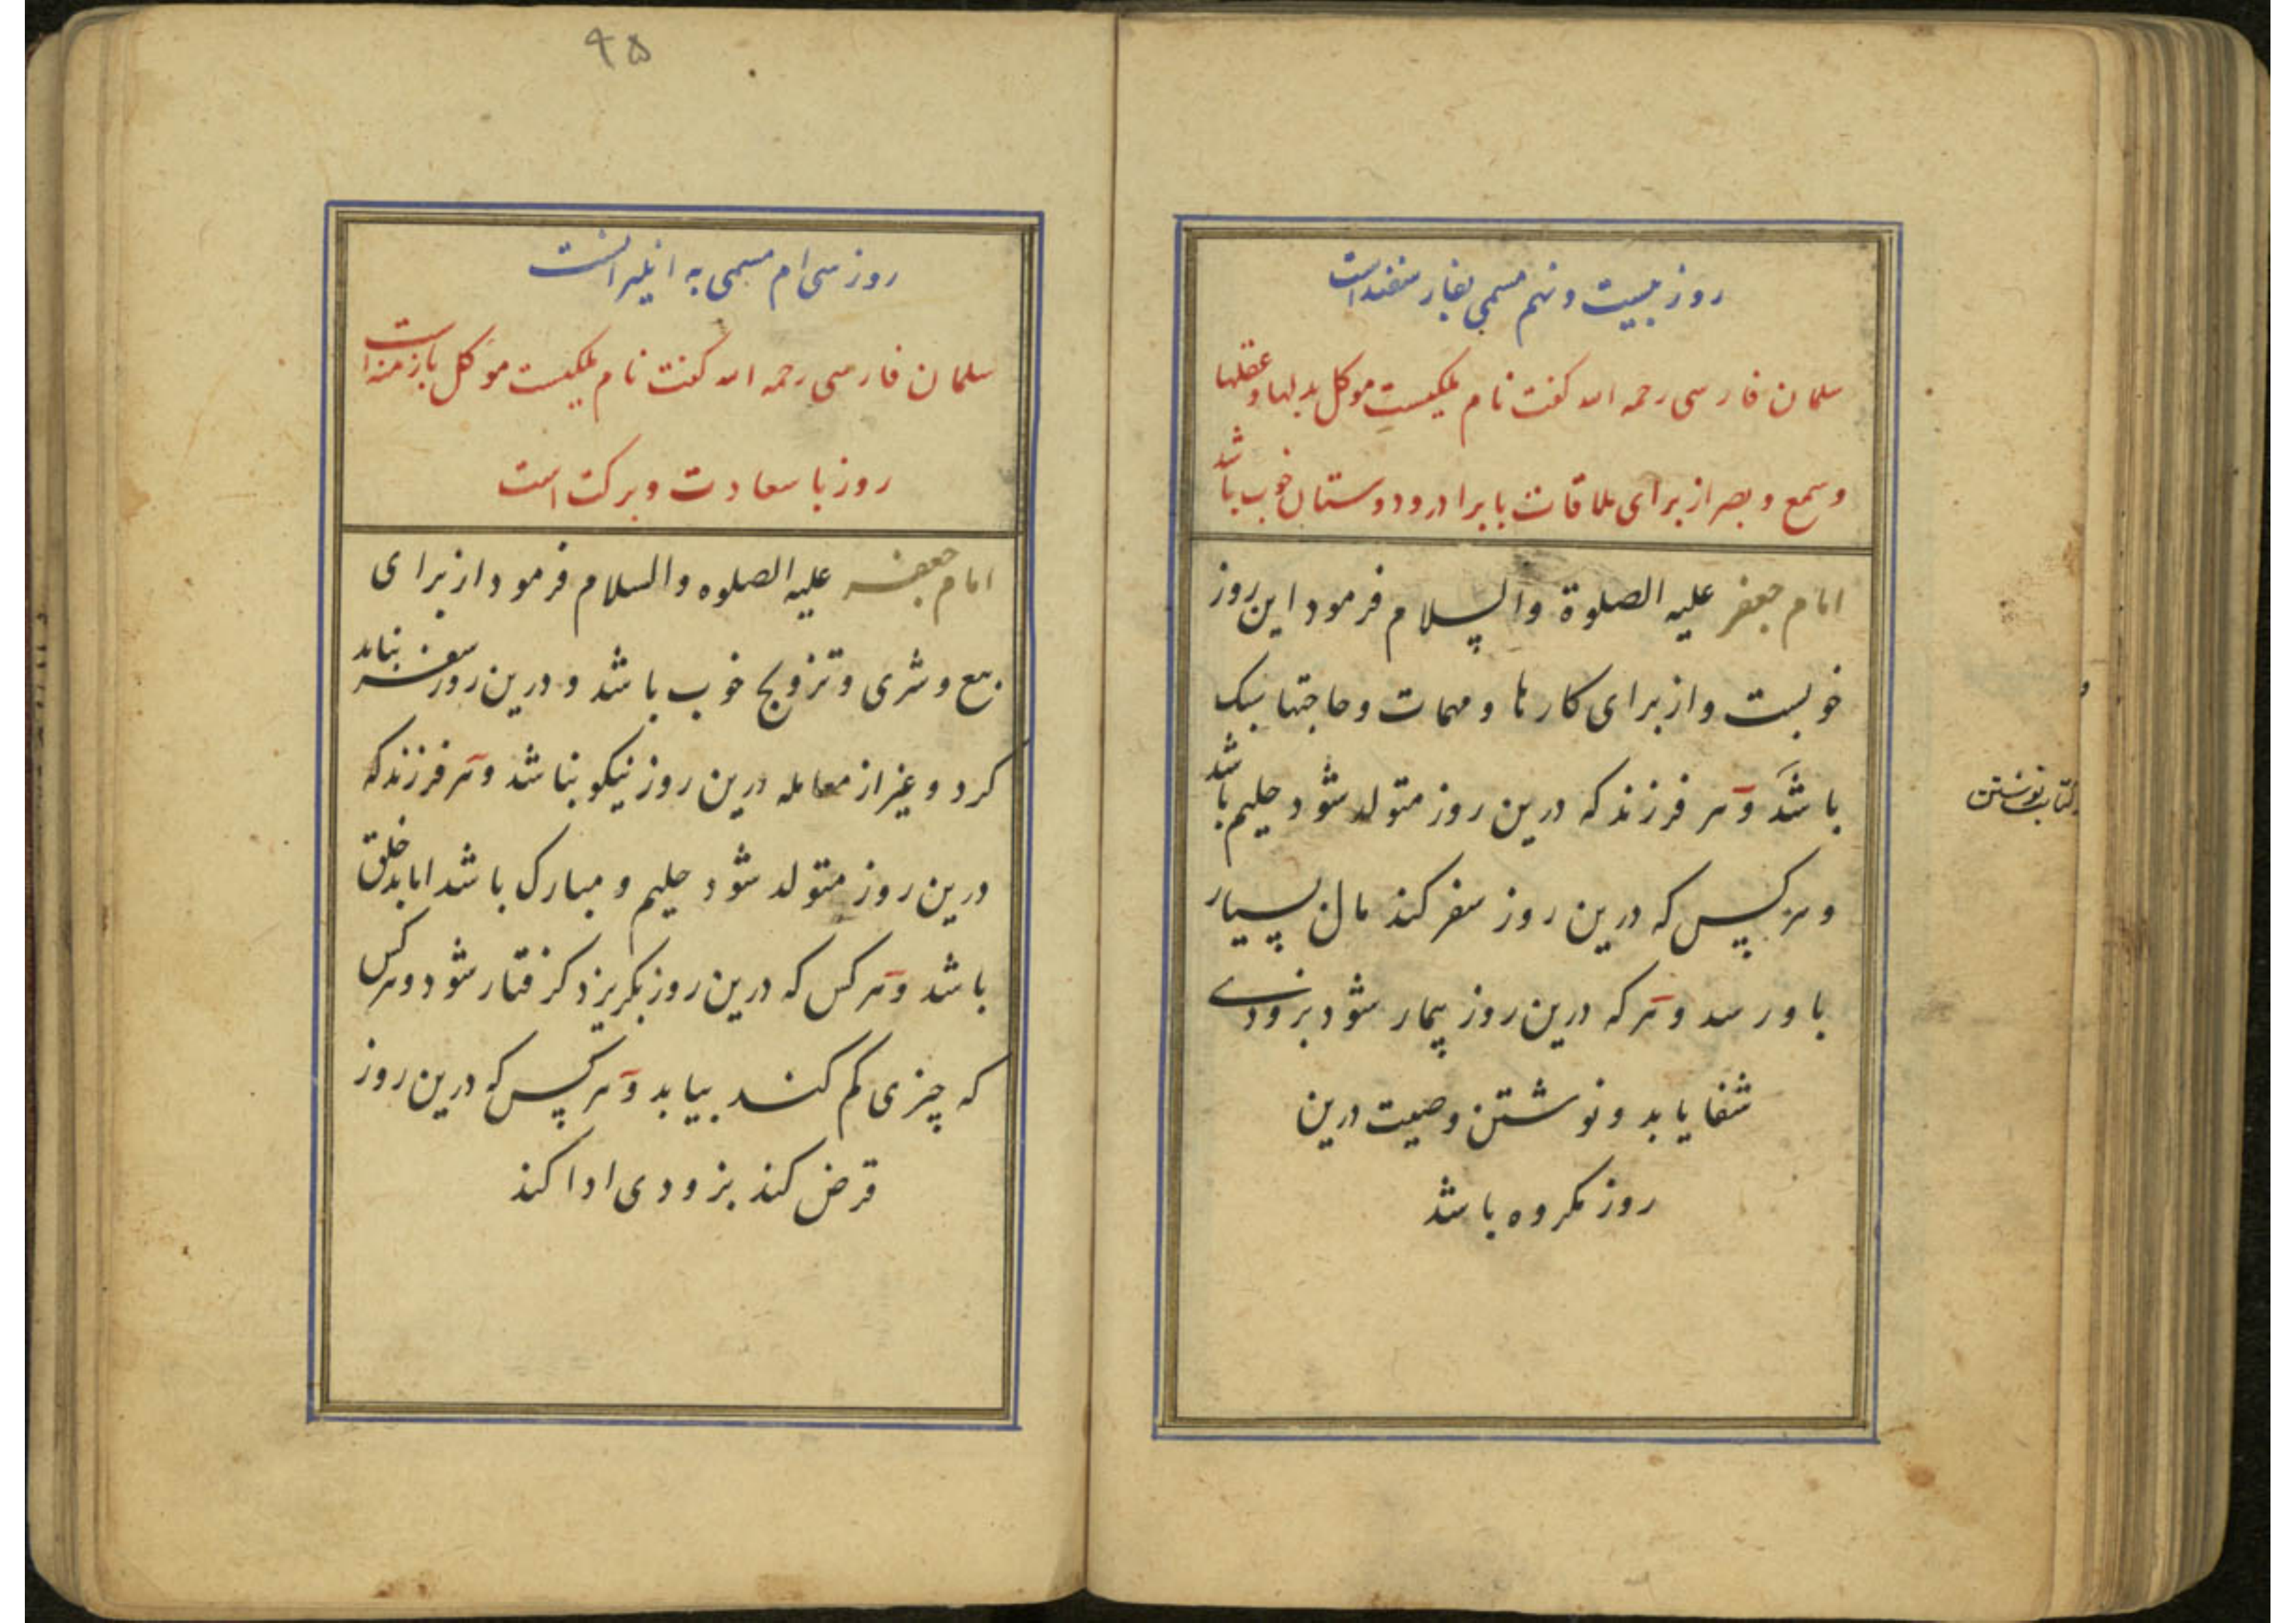 روز بیست و نهم مسمی بمار سفنداست
سلمان فارسی رحمه الله گفت نام ملکیست موکل بدلها و عقلها
و سمع و بصر از برای ملاقات با برادر و دوستان خوب باشد
امام جعفر علیه الصلوة والسلام فرمود این روز
خوبست و از برای کارها و مهمات و حاجتها نیک
باشد و هر فرزند که درین روز متولد شود حلیم باشد
و هر کس که درین روز سفر کند مال بسیار
باو رسد و هر که درین روز بیمار شود بزودی
شفا یابد و نوشتن وصیت درین
روز مکروه باشد
کتاب نوشتن
۹۵
روز سی ام مسمی به انیر است
سلمان فارسی رحمه الله گفت نام ملکیست موکل بازمنه است
روز با سعادت و برکت است
امام جعفر علیه الصلوه والسلام فرمود از برای
بیع و شری و تزویج خوب باشد و درین روز سفر نباید
کرد و غیر از معامله درین روز نیکو نباشد و هر فرزند که
درین روز متولد شود حلیم و مبارک باشد اما بدخلق
باشد و هر کس که درین روز بگریزد گرفتار شود و هر کس
که چیزی گم کند بیابد و هر کس که درین روز
قرض کند بزودی ادا کند